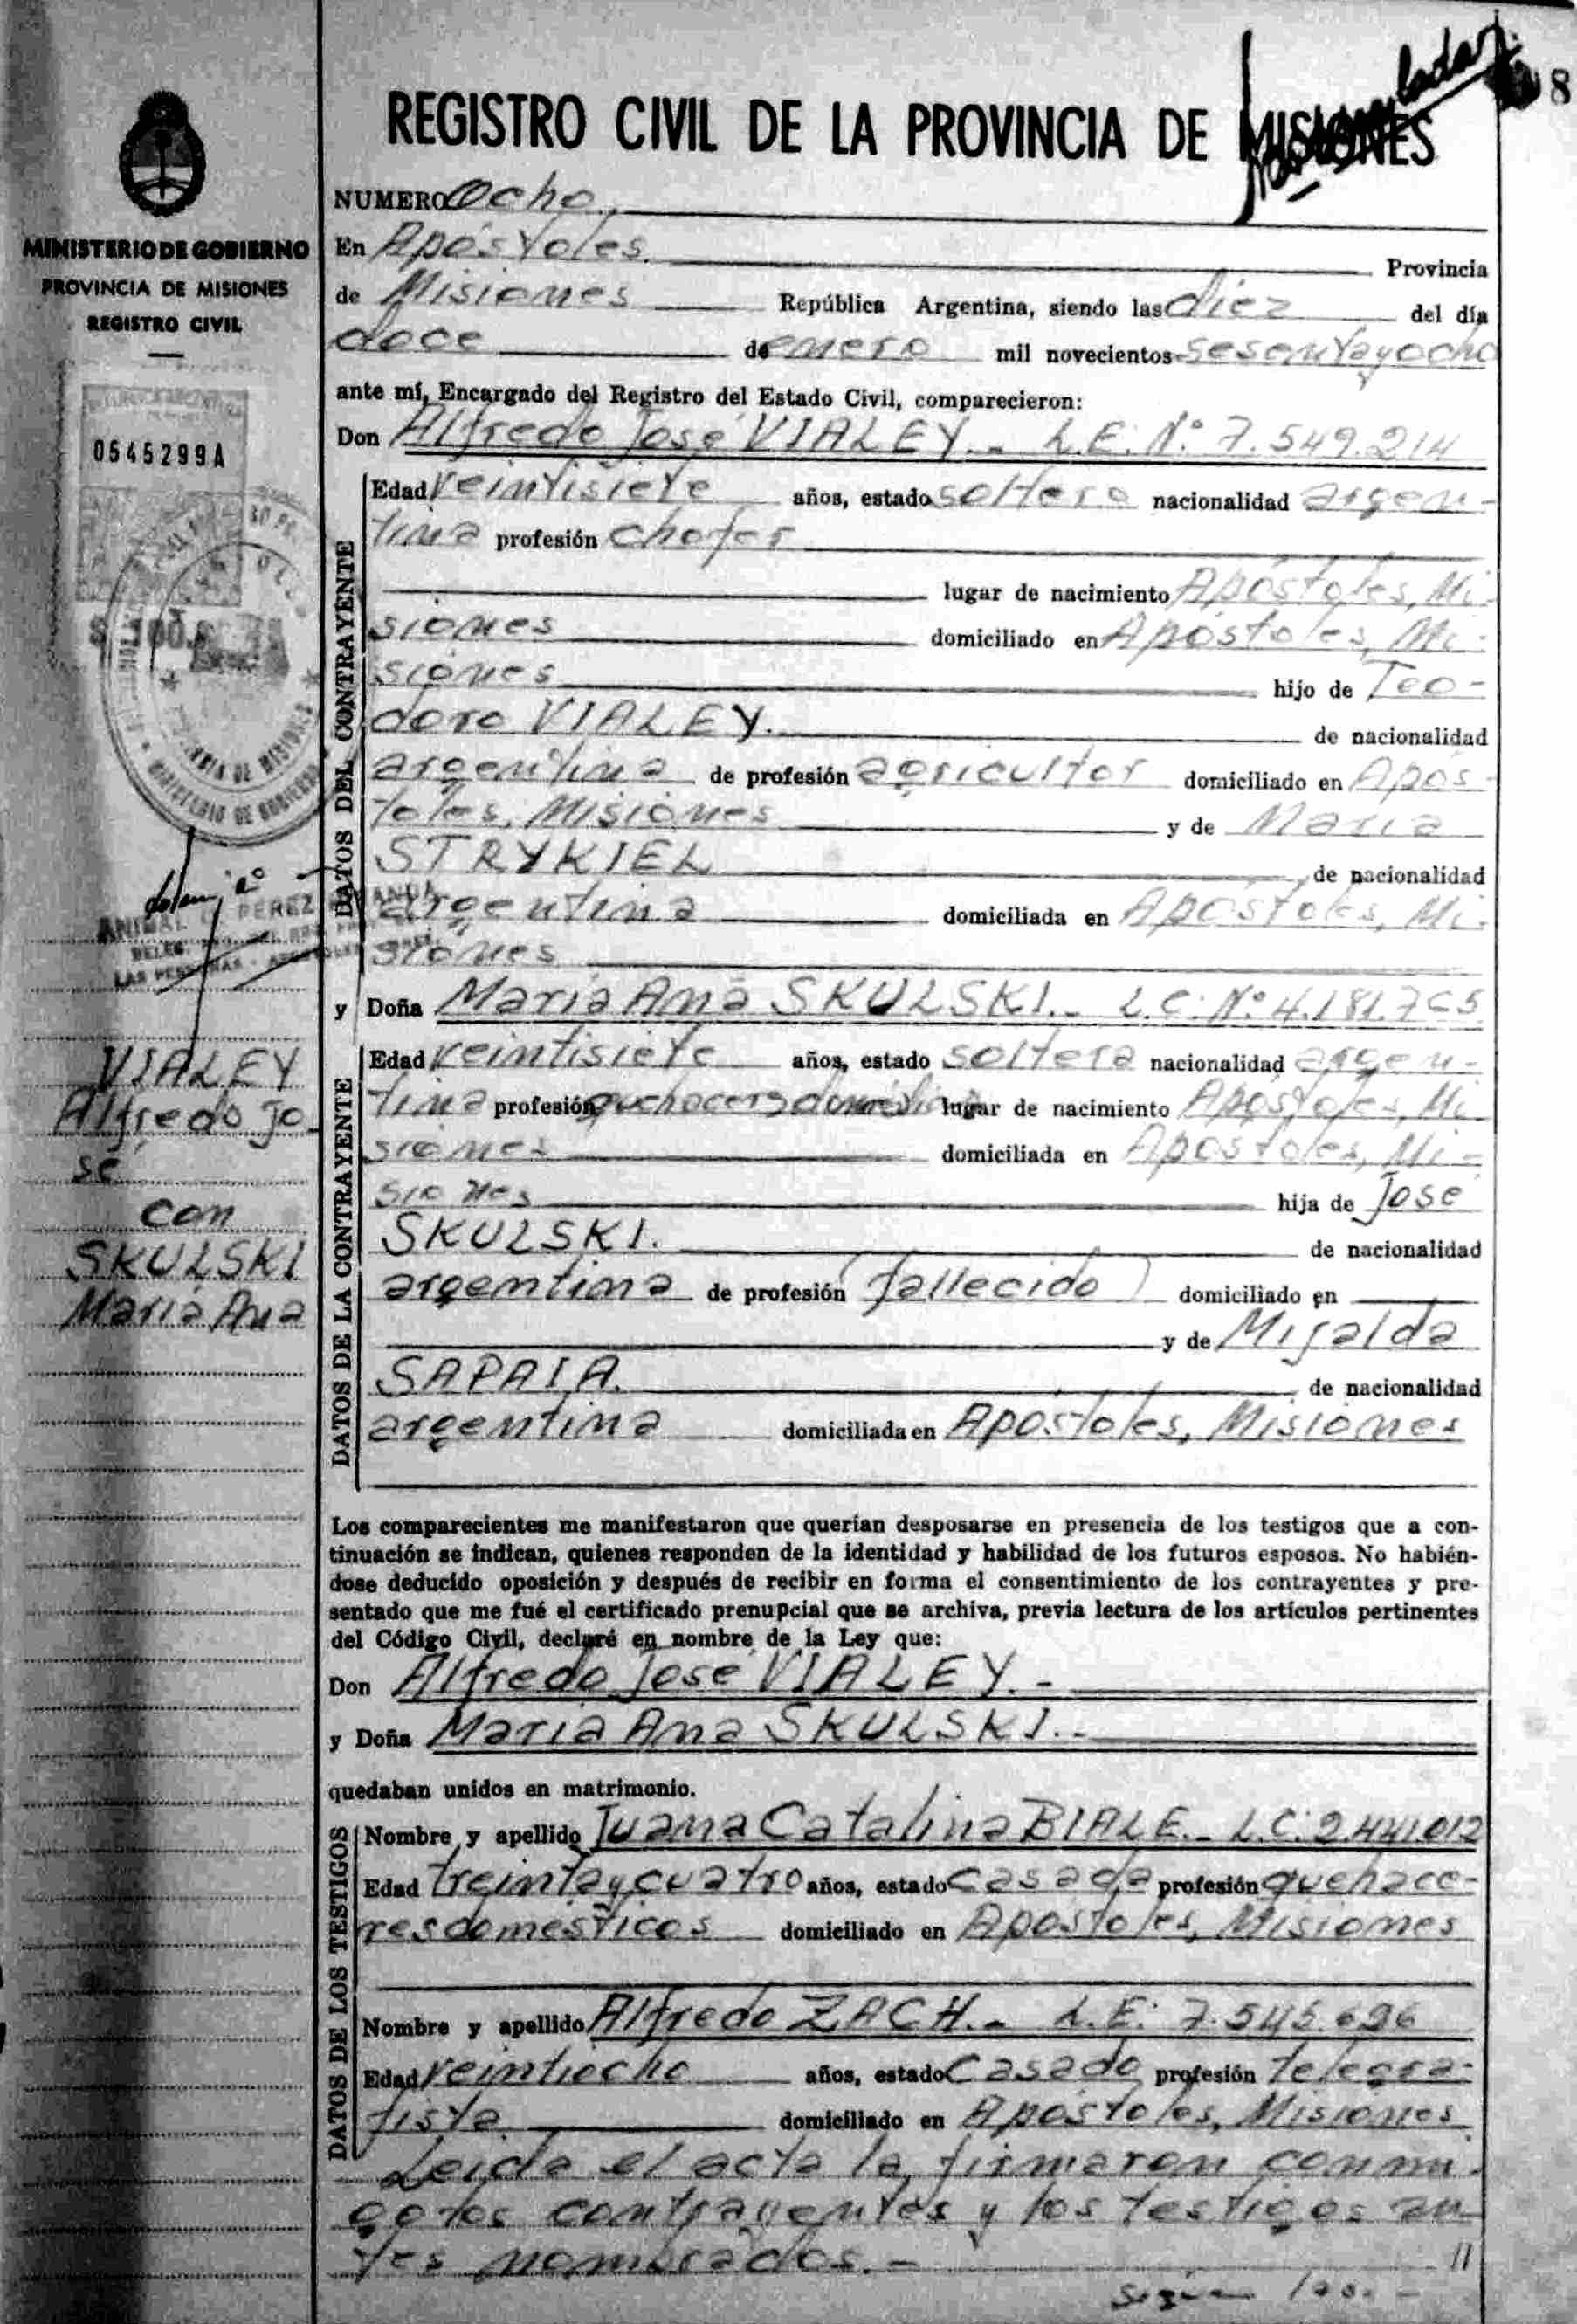 8
REGISTRO CIVIL DE LA PROVINCIA DE MISIONES
NUMERO Ocho
En Apóstoles. Provincia
de Misiones República Argentina, siendo las diez del día
doce de enero mil novecientos sesentayocho
ante mí, Encargado del Registro del Estado Civil, comparecieron:
Don Alfredo José VIALEY.- L.E. Nº 7.549.214
DATOS DEL CONTRAYENTE
Edad veintisiete años, estado soltero nacionalidad argen-
tina profesión chofer
lugar de nacimiento Apóstoles, Mi-
siones domiciliado en Apóstoles, Mi-
siones hijo de Teo-
doro VIALEY. de nacionalidad
argentina de profesión agricultor domiciliado en Após-
toles, Misiones y de María
STRYKIEL de nacionalidad
argentina domiciliada en Apóstoles, Mi-
siones
y Doña María Ana SKULSKI.- L.C. Nº 4.181.765
DATOS DE LA CONTRAYENTE
Edad veintisiete años, estado soltera nacionalidad argen-
tina profesión lugar de nacimiento Apóstoles, Mi-
siones domiciliada en Apóstoles, Mi-
siones hija de José
SKULSKI. de nacionalidad
argentina de profesión (fallecido) domiciliado en
y de Misalda
SAPAIA. de nacionalidad
argentina domiciliada en Apóstoles, Misiones
Los comparecientes me manifestaron que querían desposarse en presencia de los testigos que a con-
tinuación se indican, quienes responden de la identidad y habilidad de los futuros esposos. No habién-
dose deducido oposición y después de recibir en forma el consentimiento de los contrayentes y pre-
sentado que me fué el certificado prenupcial que se archiva, previa lectura de los artículos pertinentes
del Código Civil, declaré en nombre de la Ley que:
Don Alfredo José VIALEY.-
y Doña María Ana SKULSKI.-
quedaban unidos en matrimonio.
DATOS DE LOS TESTIGOS
Nombre y apellido Juana Catalina BIALE.- L.C: 2.441.012
Edad treintaycuatro años, estado casada profesión quehace-
res domésticos domiciliado en Apóstoles, Misiones
Nombre y apellido Alfredo ZACH.- L.E: 7.545.696
Edad veintiocho años, estado casado profesión telegra-
fista domiciliado en Apóstoles, Misiones
Leída el acta la firmaron conmi-
go los contrayentes y los testigos an-
tes nombrados.- //
MINISTERIO DE GOBIERNO
PROVINCIA DE MISIONES
REGISTRO CIVIL
0545299A
VIALEY
Alfredo Jo-
sé
con
SKULSKI
María Ana